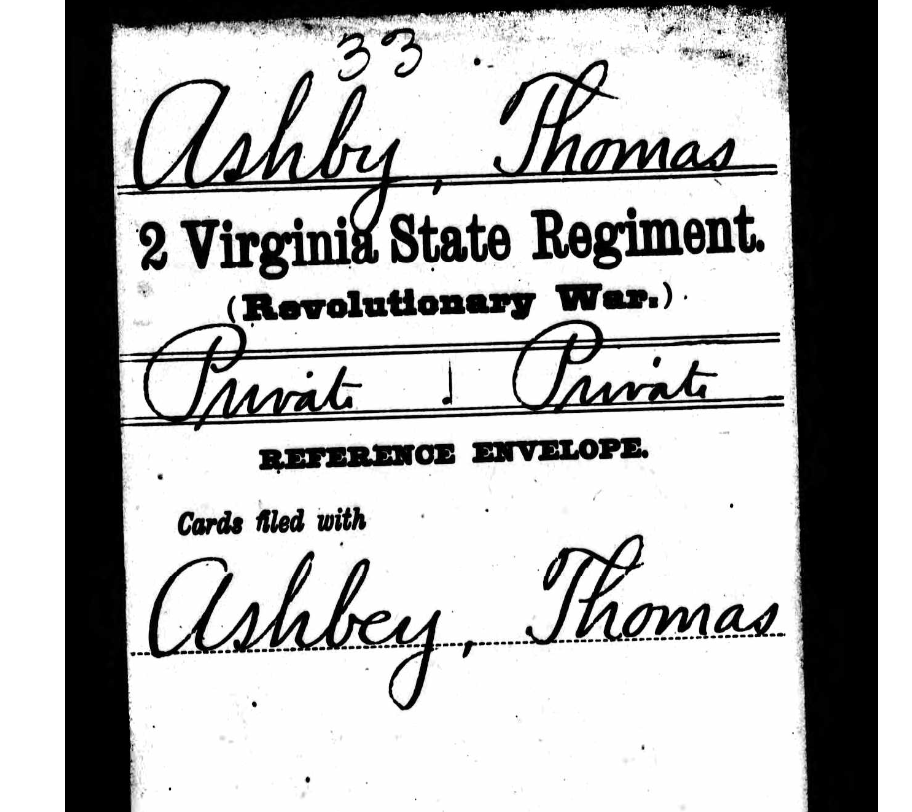 33
Ashby, Thomas
2 Virginia State Regiment.
(Revolutionary War.)
Private | Private
REFERENCE ENVELOPE.
Cards filed with
Ashbey, Thomas